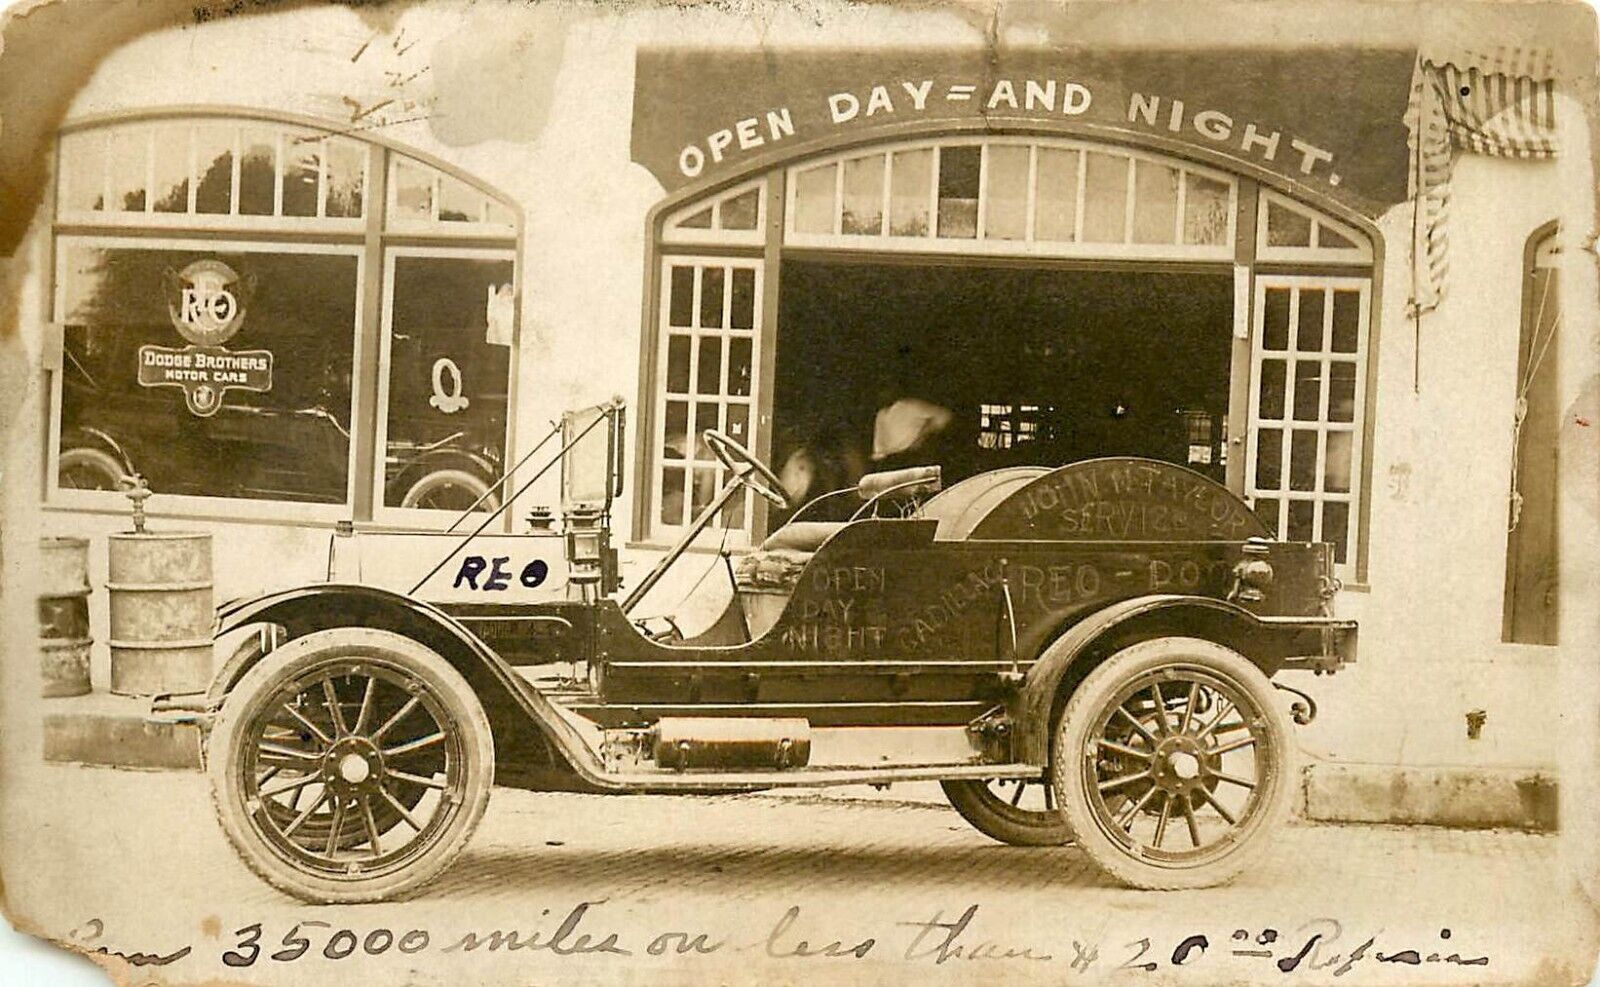 OPEN DAY = AND NIGHT.
REO
DODGE BROTHERS
MOTOR CARS
JOHN W. TAYLOR
SERVICE
REO
OPEN
DAY &
NIGHT
CADILLAC
REO -
Run 35000 miles on less than $20.00 Repairs